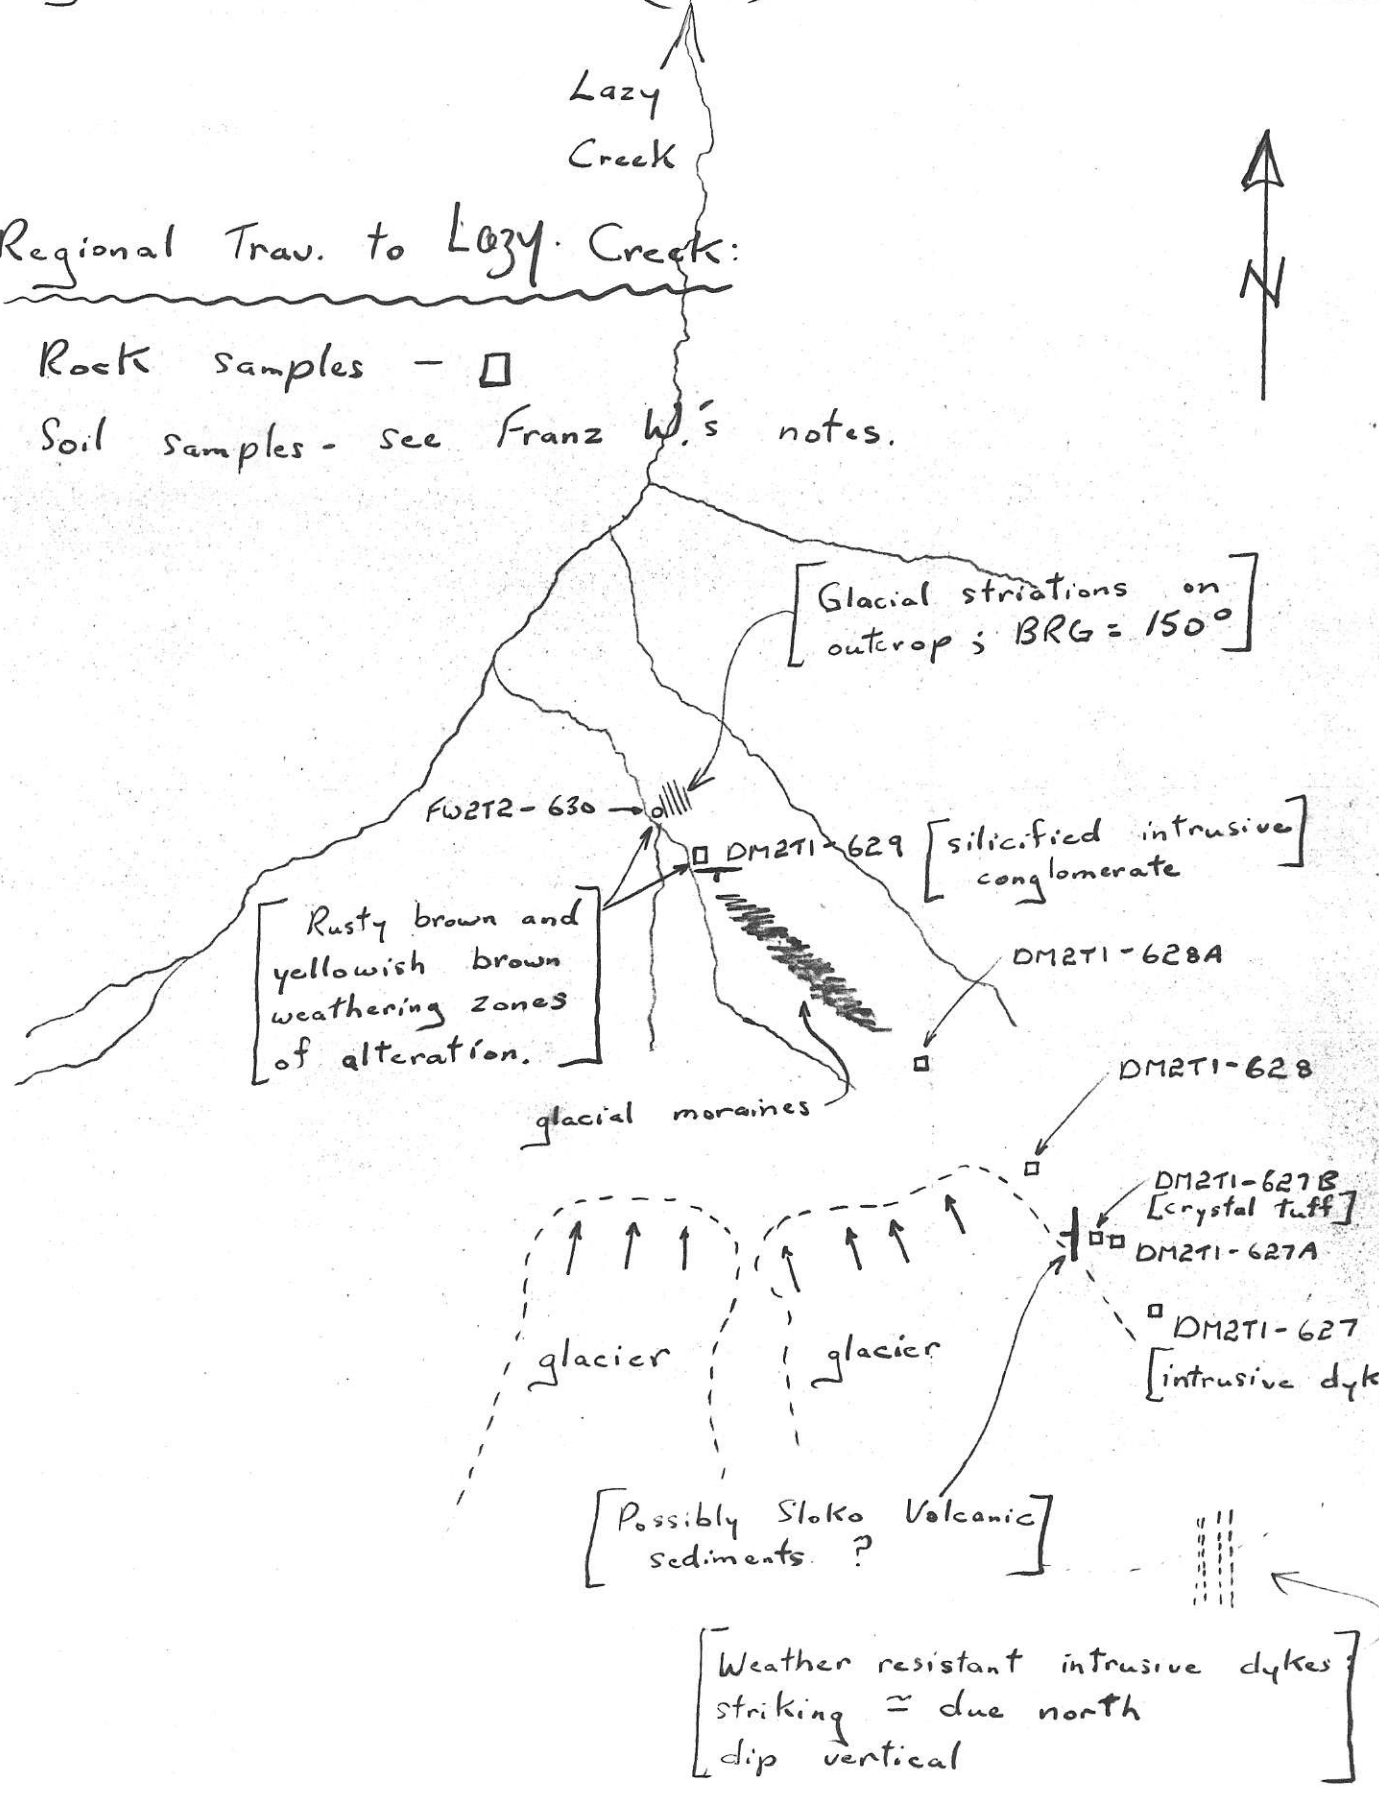 Lazy
Creek
N
Regional Trav. to Lazy Creek:
Rock samples -
Soil samples - see Franz W.'s notes.
[Glacial striations on
outcrop; BRG = 150°]
FW2T2-630
DM2T1-629 [silicified intrusive
conglomerate]
[Rusty brown and
yellowish brown
weathering zones
of alteration.]
DM2T1-628A
glacial moraines
DM2T1-628
DM2T1-627B
[crystal tuff]
DM2T1-627A
DM2T1-627
[intrusive dyk
glacier
glacier
[Possibly Sloko Volcanic
sediments ?]
[Weather resistant intrusive dykes
striking ≃ due north
dip vertical]